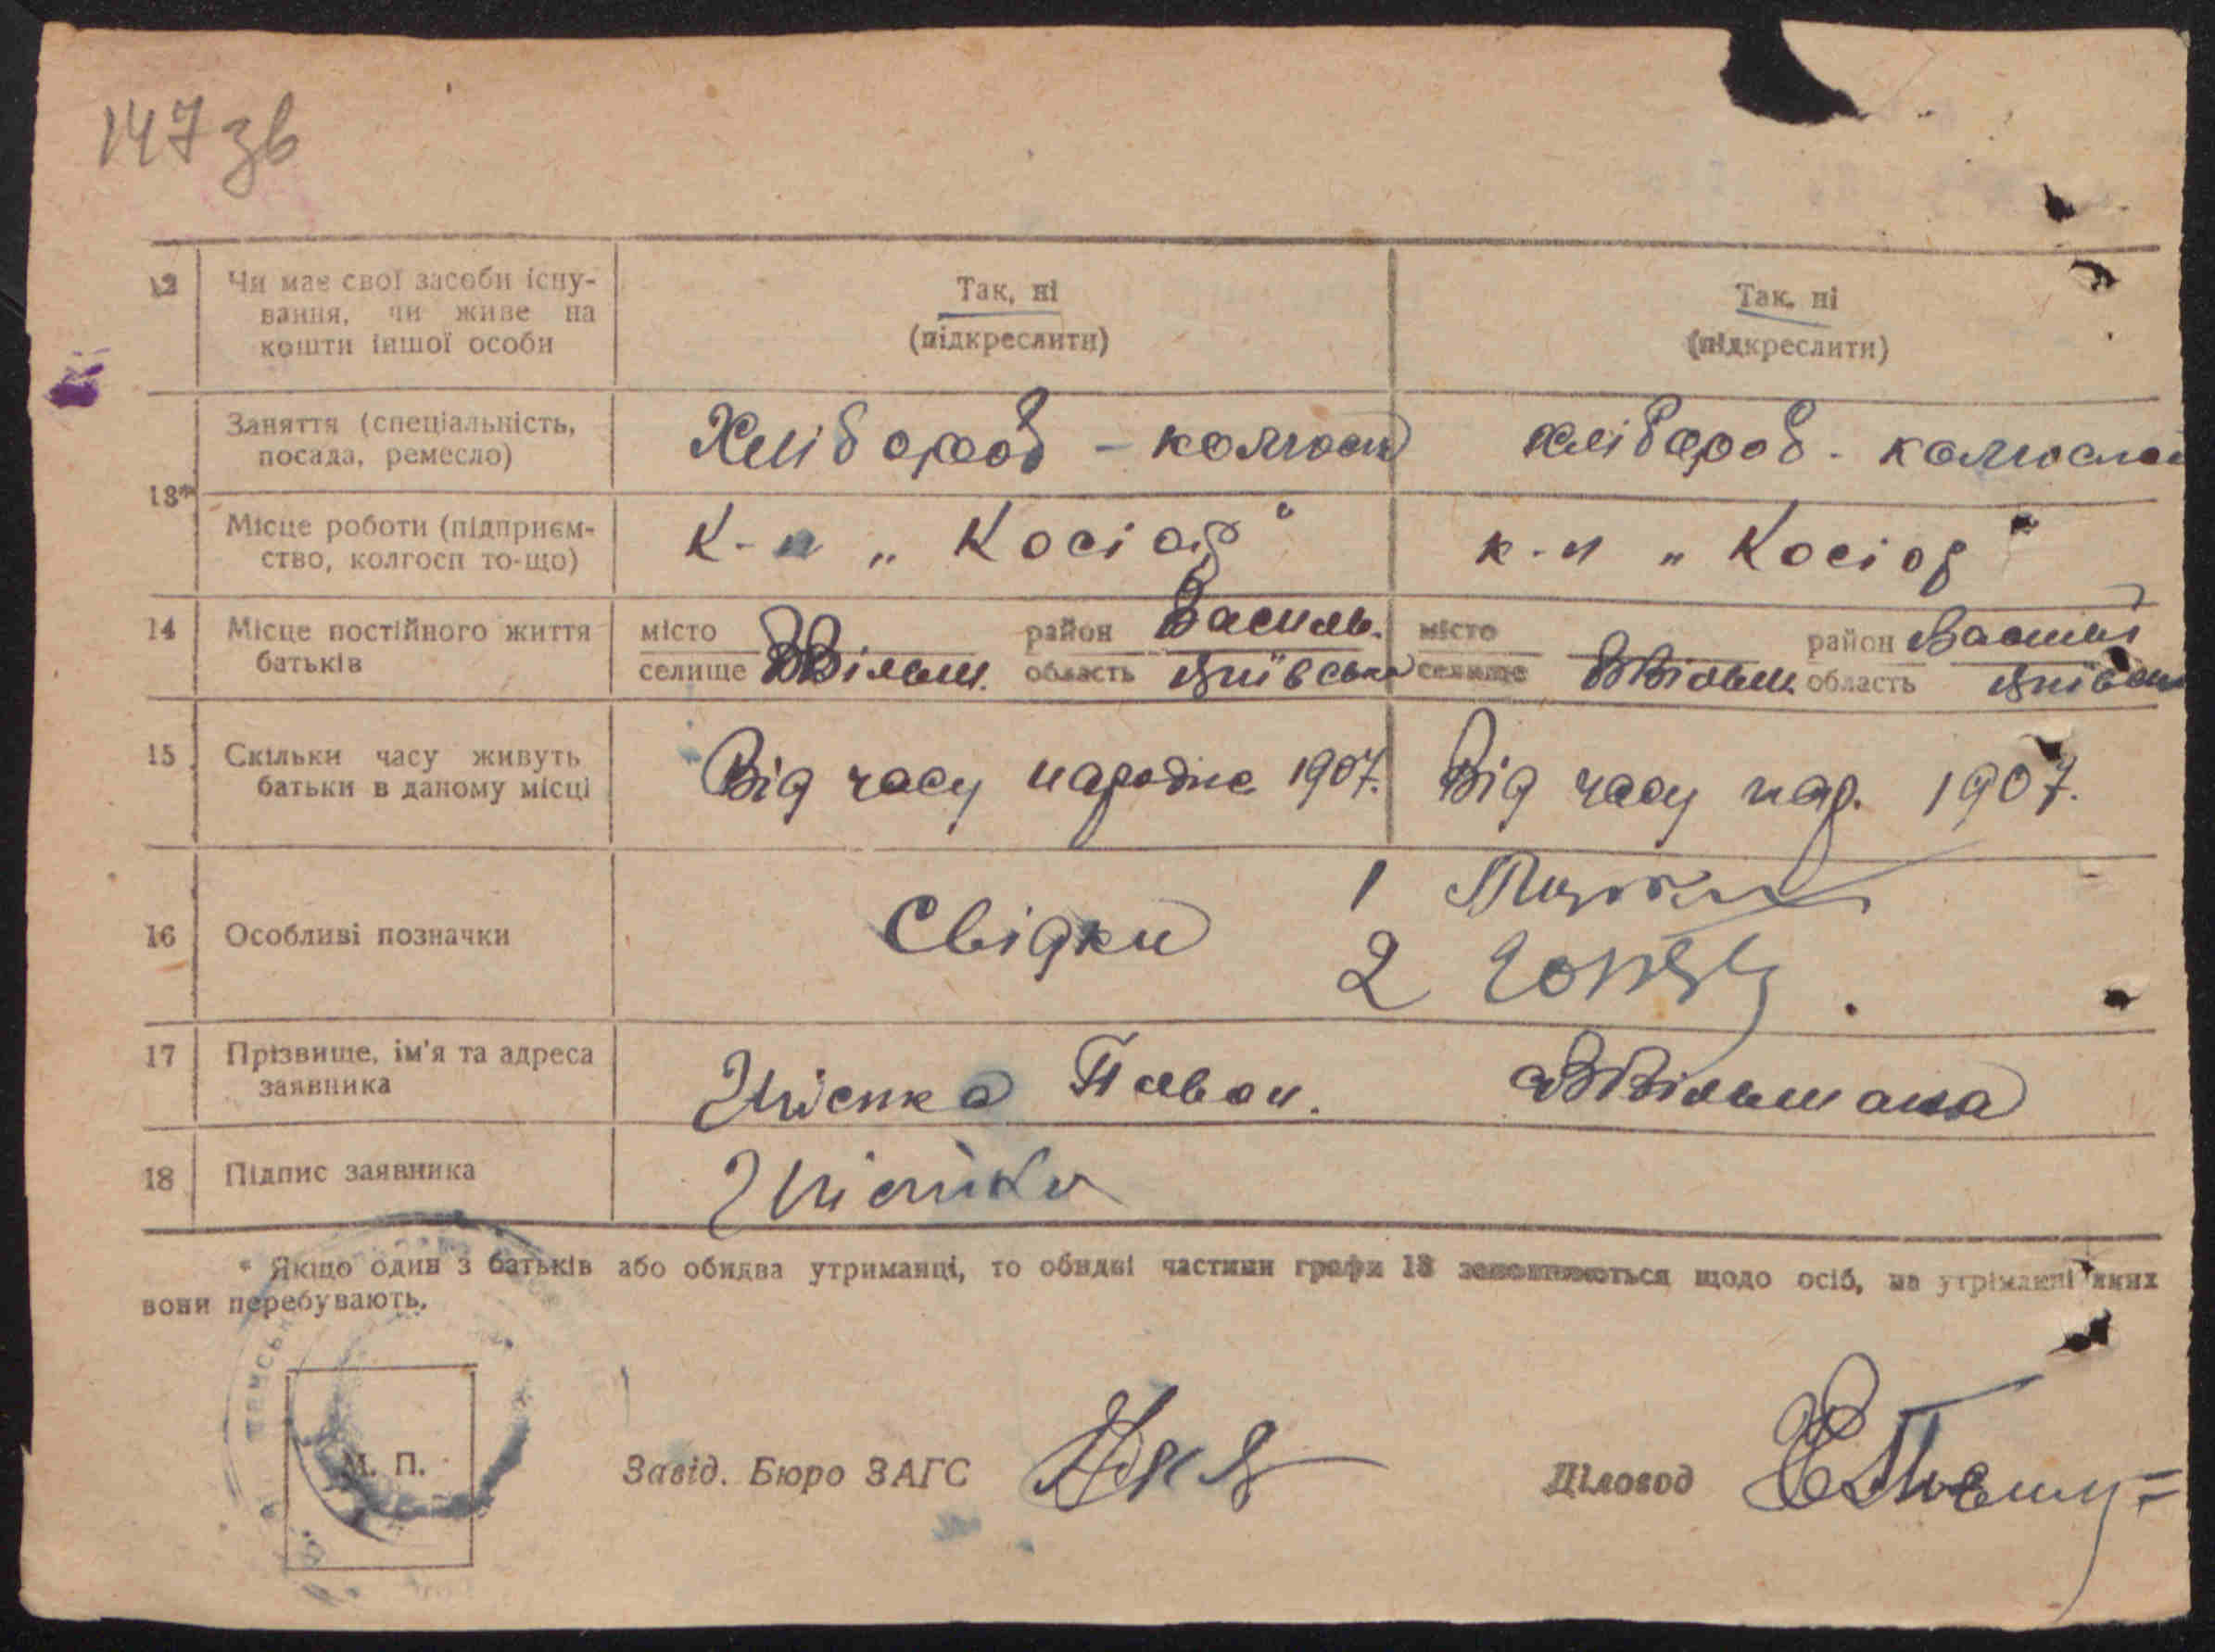 147 зв
12 Чи має свої засоби існу-
вання, чи живе на
кошти іншої особи
Так, ні
(підкреслити)
Так, ні
(підкреслити)
13*
Заняття (спеціальність,
посада, ремесло)
Хлібороб - колгосп
хлібороб - колгосп
Місце роботи (підприєм-
ство, колгосп то-що)
К-п „Косіор"
к-п „Косіор"
14 Місце постійного життя
батьків
місто
селище ВВільш.
район Василь.
область Київська
місто
селище ВВільш.
район Васильк
область Київськ
15 Скільки часу живуть
батьки в даному місці
Від часу народже 1907.
Від часу нар. 1907.
16 Особливі позначки
Свідки
1
2
17 Прізвище, ім'я та адреса
заявника
Павол. ВВільшана
18 Підпис заявника
* Якщо один з батьків або обидва утриманці, то обидві частини графи 13 заповняються щодо осіб, на утріманні яких
вони перебувають.
М. П.
Завід. Бюро ЗАГС
Діловод